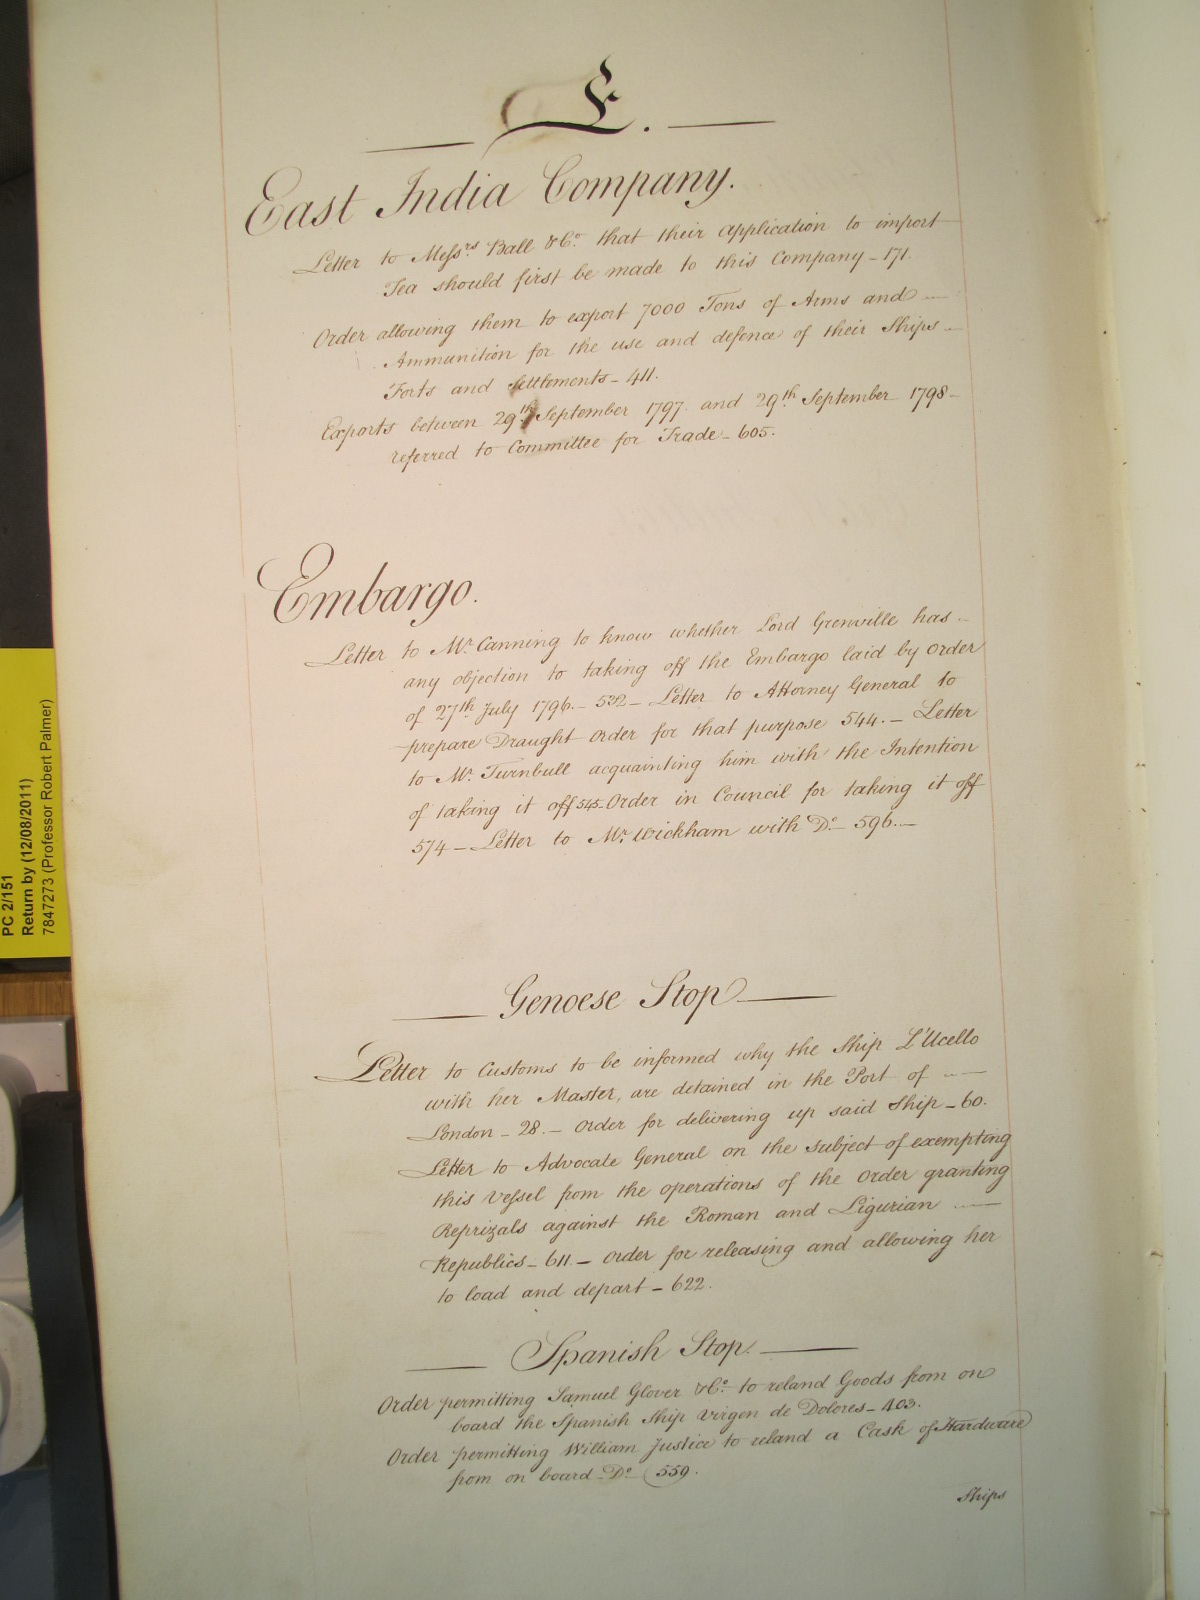 E.
East India Company.
Letter to Messrs Ball & Co. that their application to import
Tea should first be made to this Company - 171.
Order allowing them to export 7000 Tons of Arms and
Ammunition for the use and defence of their Ships
Forts and Settlements - 411.
Exports between 29th September 1797 and 29th September 1798
referred to Committee for Trade - 605.
Embargo.
Letter to Mr. Canning to know whether Lord Grenville has
any objection to taking off the Embargo laid by Order
of 27th July 1796. - 532 - Letter to Attorney General to
prepare Draught Order for that purpose 544. - Letter
to Mr. Turnbull acquainting him with the Intention
of taking it off 545 - Order in Council for taking it off
574 - Letter to Mr. Wickham with Do. - 596. -
Genoese Stop
Letter to Customs to be informed why the Ship L'Ucello
with her Master, are detained in the Port of
London - 28. - Order for delivering up said Ship - 60.
Letter to Advocate General on the subject of exempting
this Vessel from the operations of the Order granting
Reprizals against the Roman and Ligurian
Republics - 611 - Order for releasing and allowing her
to load and depart - 622.
Spanish Stop.
Order permitting Samuel Glover & Co. to reland Goods from on
board the Spanish Ship Virgen de Dolores - 403.
Order permitting William Justice to reland a Cask of Hardware
from on board Do. 559.
Ships
PC 2/151
Return by (12/08/2011)
7847273 (Professor Robert Palmer)